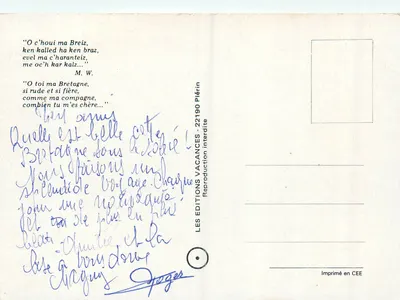 "O c'houi ma Breiz,
ken kalled ha ken braz,
evel ma c'haranteiz,
me oc'h kar kaiz..."
M. W.
"O toi ma Bretagne,
si rude et si fière,
comme ma compagne,
combien tu m'es chère..."
Quelle est belle cette
Bretagne sous
Nous faisons un
splendide voyage. Chaque
jour
de plus en plus
beau. Amitié et la
bise à
Roger
LES EDITIONS VACANCES - 22190 Plérin
Reproduction interdite
Imprimé en CEE